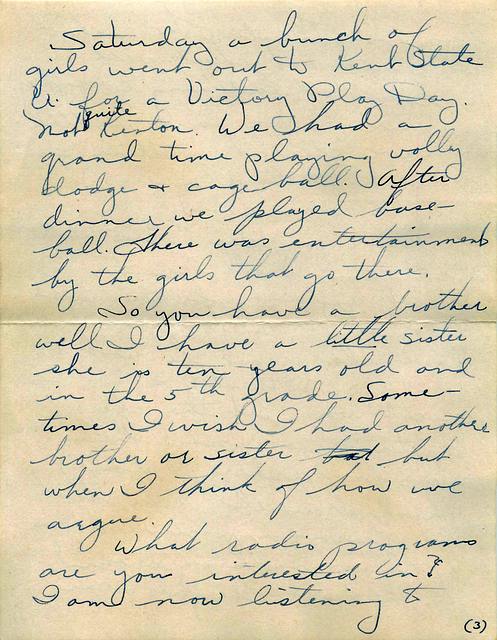 Saturday a bunch of
girls went out to Kent State
U. for a Victory Play Day.
not quite Kenton. We had a
grand time playing volley
dodge + cage ball. After
dinner we played base-
ball. There was entertainment
by the girls that go there.
So you have a brother
well I have a little sister
she is ten years old and
in the 5th grade. Some-
times I wish I had another
brother or sister but but
when I think of how we
argue.
What radio programs
are you interested in?
I am now listening to
(3)